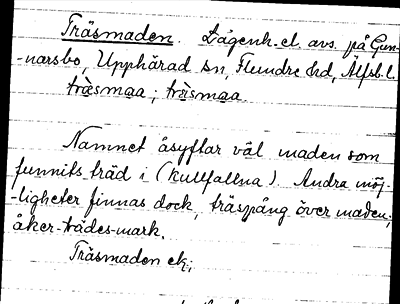 Träsmaden. Lägenh. el. avs. på Gun-
-narsbo, Upphärad sn, Flundre hd, Älfsb. l.
träsmaa; träsmaa.
Namnet åsyftar väl maden som
funnits träd i (kullfallna). Andra möj-
-ligheter finnas dock, träspång över maden;
åker-trädes-mark.
Träsmaden ek;